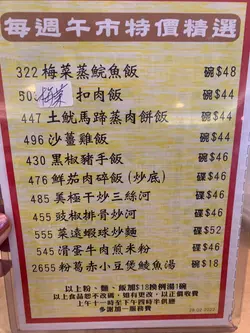 每週午市特價精選
322 梅菜蒸鯇魚飯 碗$48
503 梅菜 扣肉飯 碗$44
447 土魷馬蹄蒸肉餅飯 碗$44
496 沙薑雞飯 碗$44
430 黑椒豬手飯 碗$46
476 鮮茄肉碎飯(炒底) 碟$46
485 美極干炒三絲河 碟$46
455 豉椒排骨炒河 碟$46
555 菜遠蝦球炒麵 碟$52
545 滑蛋牛肉煎米粉 碟$46
2655 粉葛赤小豆煲鯪魚湯 碗$18
以上粉、麵、飯加$18換例湯1碗
以上食品恕不改碼，如有更改，以正價收費
上午十一時至下午四時半供應
多謝加一服務費